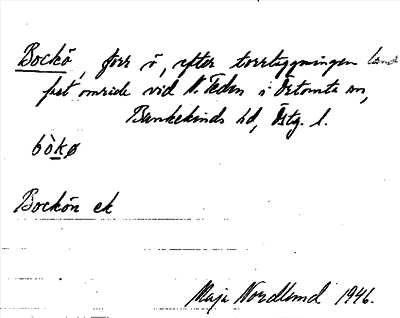 Bockö, förr ö, efter torrläggningen land
fast område vid N. Teden i Örtomta sn,
Bankekinds hd, Östg. l.
bò̱kø
Bockön ek
Maja Nordlund 1946.